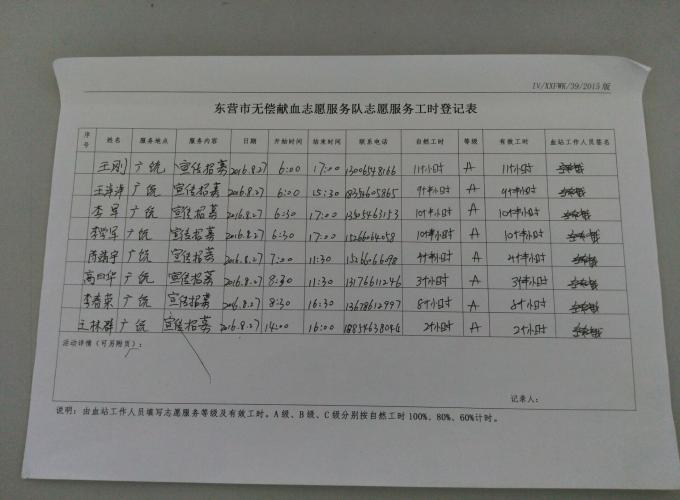 IV/XXFWK/39/2015版
东营市无偿献血志愿服务队志愿服务工时登记表
序号 姓名 服务地点 服务内容 日期 开始时间 结束时间 联系电话 自然工时 等级 有效工时 血站工作人员签名
王刚 广饶 宣传招募 2016.8.27 6:00 17:00 13006548166 11个小时 A 11个小时
王泽涛 广饶 宣传招募 2016.8.27 6:00 15:30 A
李军 广饶 宣传招募 2016.8.27 6:30 17:00 A
李学军 广饶 宣传招募 2016.8.27 6:30 17:00 15266064058 A
陈靖宇 广饶 宣传招募 2016.8.27 7:00 11:30 15266066098 A
高四华 广饶 宣传招募 2016.8.27 8:30 11:30 13176611246 3个小时 A 3个小时
李春荣 广饶 宣传招募 2016.8.27 8:30 16:30 13678612997 8个小时 A 8个小时
王林群 广饶 宣传招募 2016.8.27 14:00 16:00 18854638044 2个小时 A 2个小时
活动详情（可另附页）：
记录人：
说明：由血站工作人员填写志愿服务等级及有效工时。A级、B级、C级分别按自然工时100%、80%、60%计时。